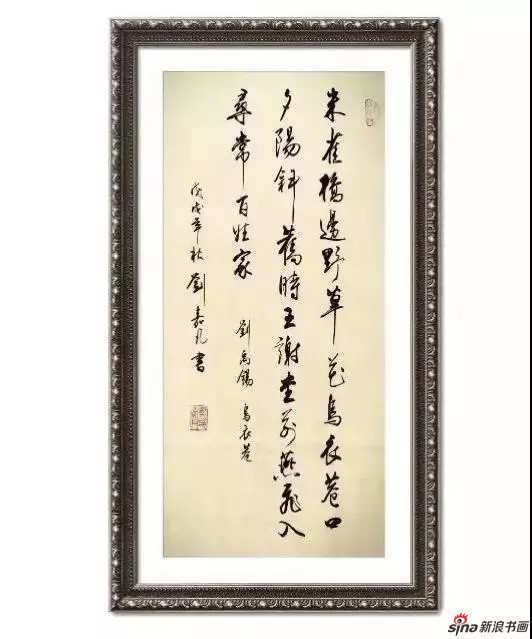 朱雀橋邊野草花烏衣巷口
夕陽斜舊時王謝堂前燕飛入
尋常百姓家
劉禹錫 烏衣巷
戊戌年秋劉嘉凡書
sina新浪书画